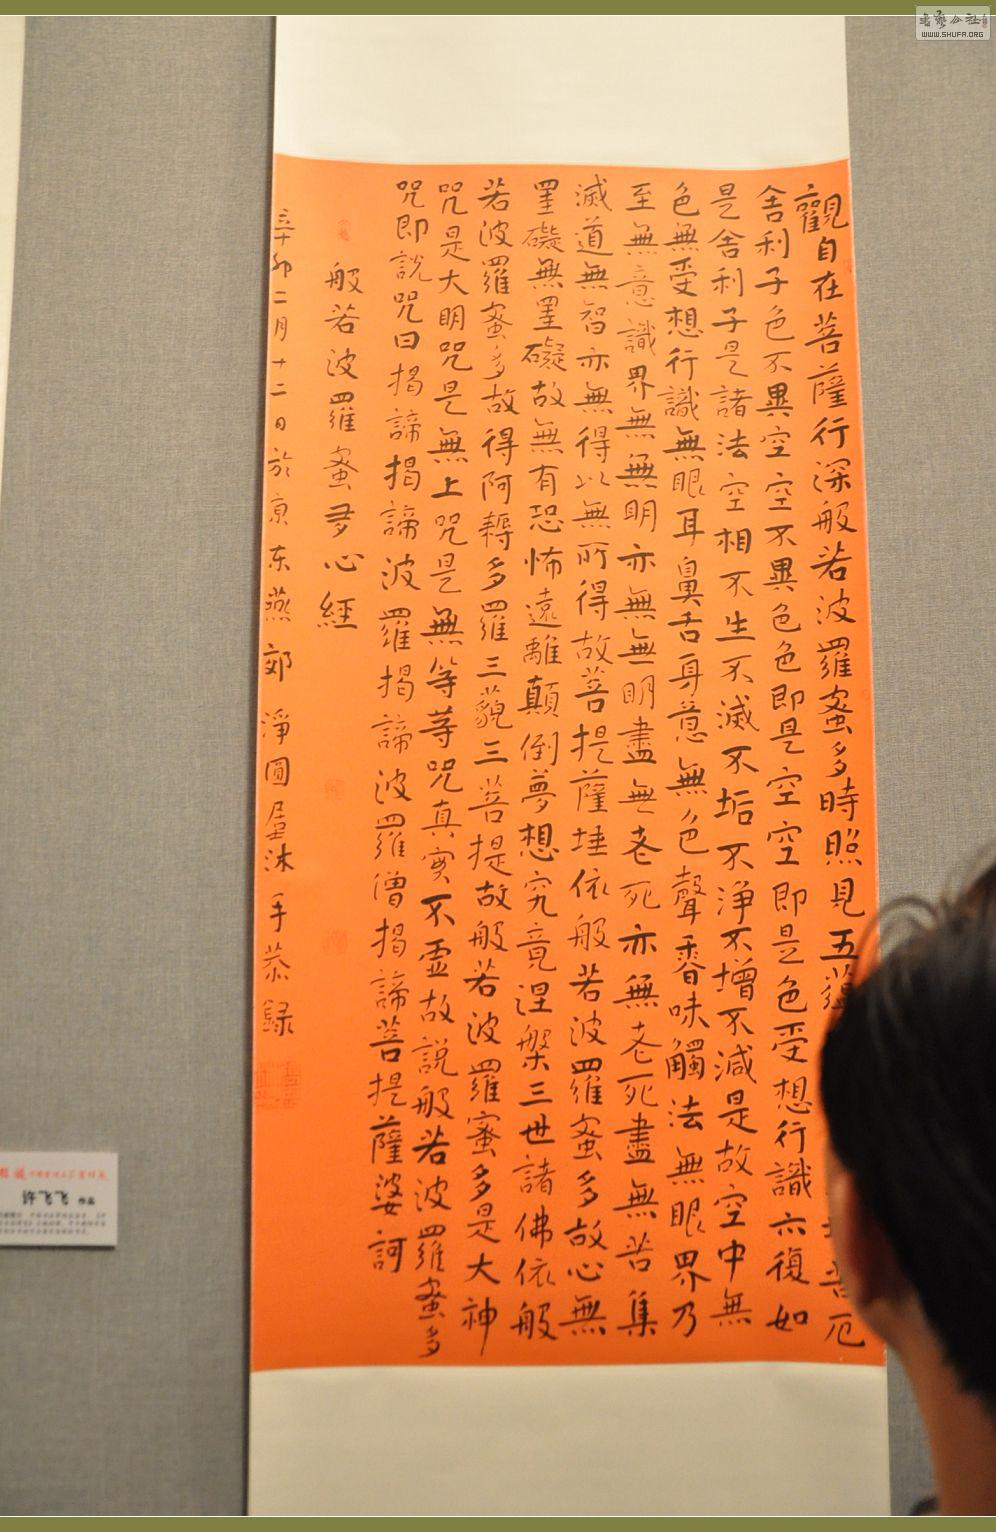 觀自在菩薩行深般若波羅蜜多時照見五蘊
苦厄
舍利子色不異空空不異色色即是空空即是色受想行識亦復如
是舍利子是諸法空相不生不滅不垢不淨不增不減是故空中無
色無受想行識無眼耳鼻舌身意無色聲香味觸法無眼界乃
至無意識界無無明亦無無明盡無老死亦無老死盡無苦集
滅道無智亦無得以無所得故菩提薩埵依般若波羅蜜多故心無
罣礙無罣礙故無有恐怖遠離顛倒夢想究竟涅槃三世諸佛依般
若波羅蜜多故得阿耨多羅三藐三菩提故般若波羅蜜多是大神
咒是大明咒是無上咒是無等等咒真實不虛故說般若波羅蜜多
咒即說咒曰揭諦揭諦波羅揭諦波羅僧揭諦菩提薩婆訶
般若波羅蜜多心經
辛卯二月十二日於京东燕郊淨圓居沐手恭録
许飞飞 作品
WWW.SHUFA.ORG